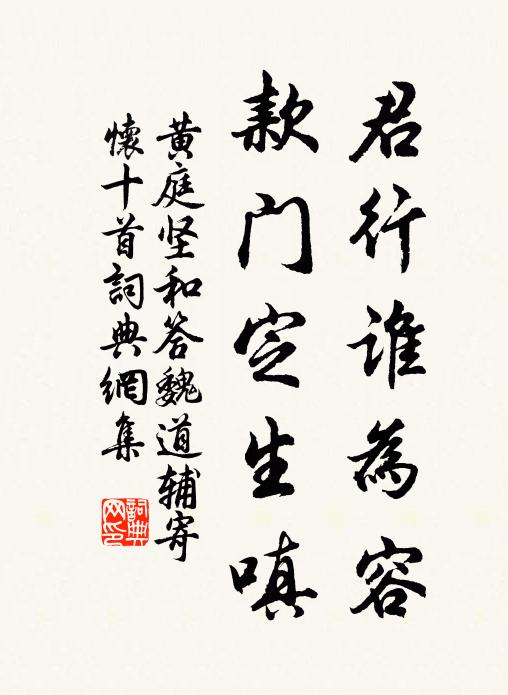 君行谁為容
款门定生嗔
黄庭坚和答魏道辅寄
懷十首詞典網集
詞典
网印